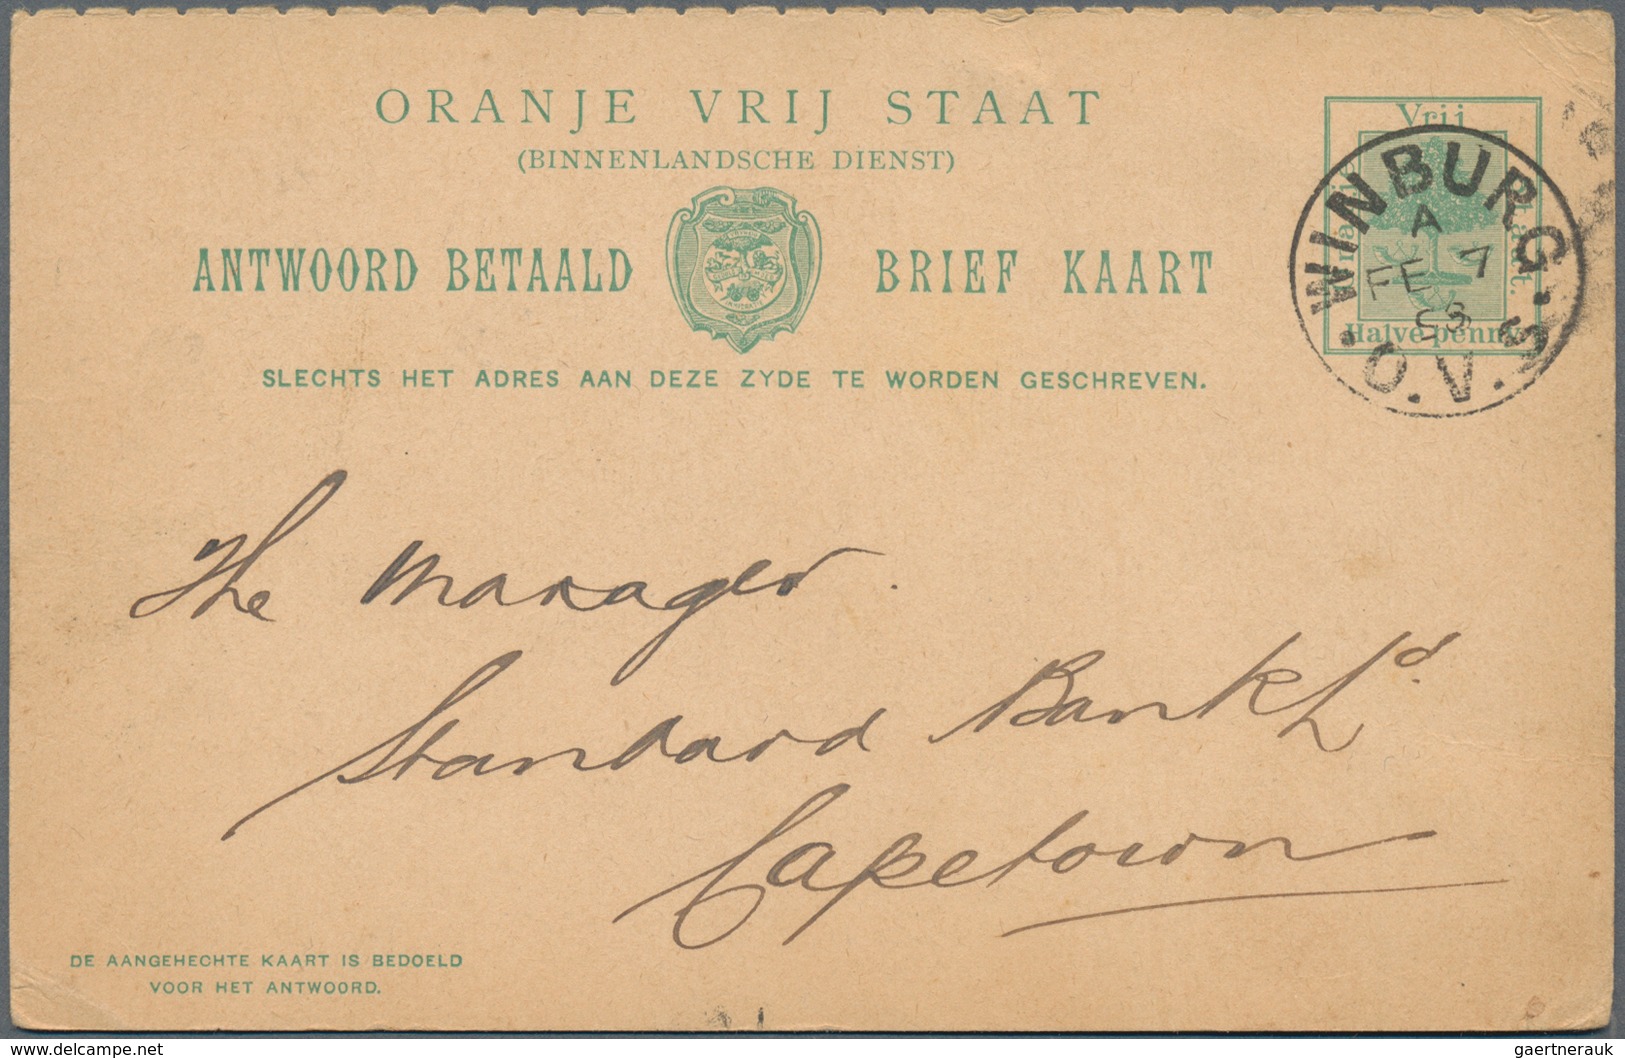 ORANJE VRIJ STAAT
(BINNENLANDSCHE DIENST)
ANTWOORD BETAALD BRIEF KAART
SLECHTS HET ADRES AAN DEZE ZYDE TE WORDEN GESCHREVEN.
Vrij
Halve penny
WINBURG.
A
FE 7
. O.V.S.
The Manager.
Standard Bank Ld.
Capetown
DE AANGEHECHTE KAART IS BEDOELD
VOOR HET ANTWOORD.
www.delcampe.net
gaertnerauk